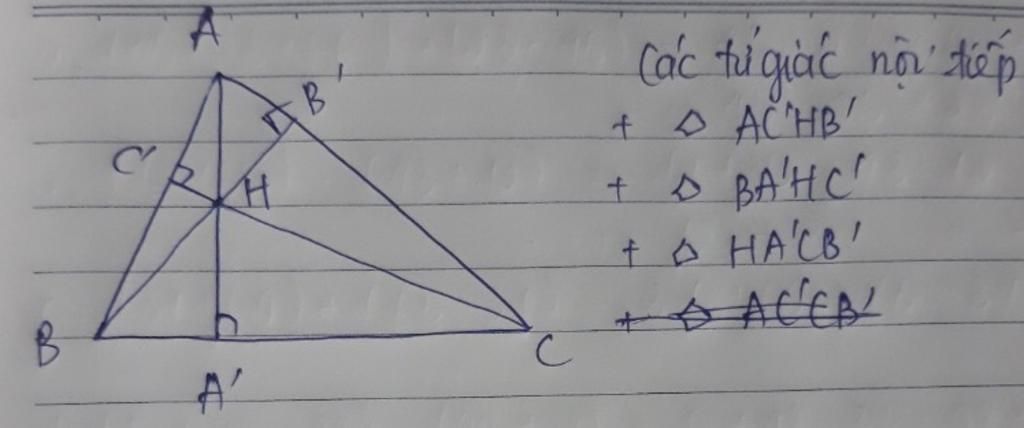 A
B'
C'
H
B
C
A'
Các tứ giác nội tiếp
+ AC'HB'
+ BA'HC'
+ HA'CB'
+ AC'CB'